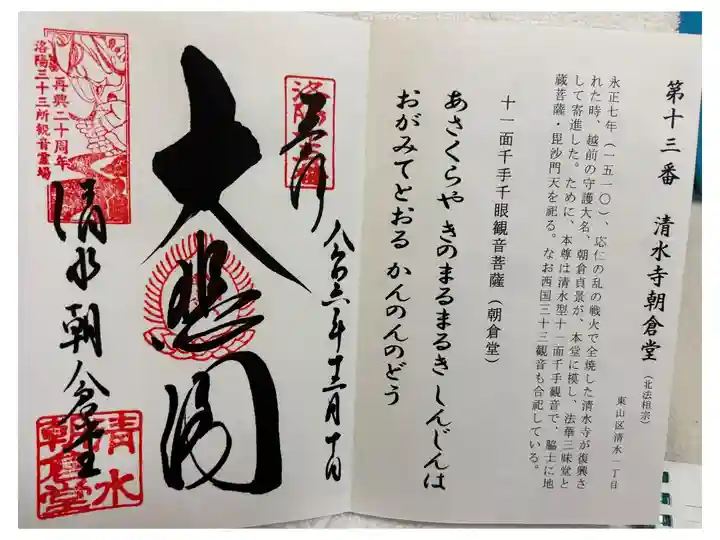 第十三番 清水寺朝倉堂
(北法相宗)
東山区清水一丁目
永正七年(一五一〇)、応仁の乱の戦火で全焼した清水寺が復興さ
れた時、越前の守護大名、朝倉貞景が、本堂に模し、法華三昧堂と
して寄進した。ために、本尊は清水型十一面千手観音で、脇士に地
蔵菩薩・毘沙門天を祀る。なお西国三十三観音も合祀している。
十一面千手千眼観音菩薩(朝倉堂)
あさくらや きのまるまるき しんじんは
おがみてとおる かんのんのどう
令和六年十二月十日
奉拝
大悲閣
再興二十周年
洛陽三十三所観音霊場
清水朝倉堂
清水
朝倉堂